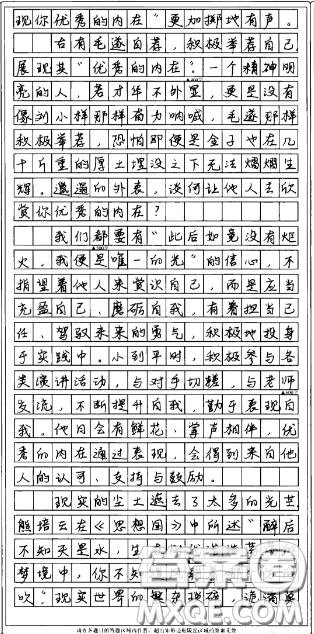 现你优秀的内在"更加掷地有声。
古有毛遂自荐，积极举荐自己，
展现其"优秀的内在？一个精神明
亮的人，若才华不外显，更是没有
像别小样那样奋力呐喊，毛遂那样
积极举荐，恐怕即便是金子也在几
十斤重的厚土埋没之下无法熠熠生
辉。邋遢的外表，谈何让他人去欣
赏你优秀的内在？
我们都要有"此后如竟没有炬
火，我便是唯一的光"的信心，不
指望着他人来赏识自己，而是应当
充盈自己、磨砺自我，有着担当己
任、驾驭未来的勇气，积极地投身
于实践中。小到平时，积极参与各
类演讲活动，与对手切磋，与老师
交流，不断提升自我，勤于表现自
我。他日会有鲜花、掌声相伴，优
秀的内在通过表现，会得到来自他
人的认可、支持与鼓励。
现实的尘土遮去了太多的光芒，
熊培云在《思想国》中所述"醉后
不知天是水，
梦境中，你不知
吹"现实世界的繁杂琐碎，湮满